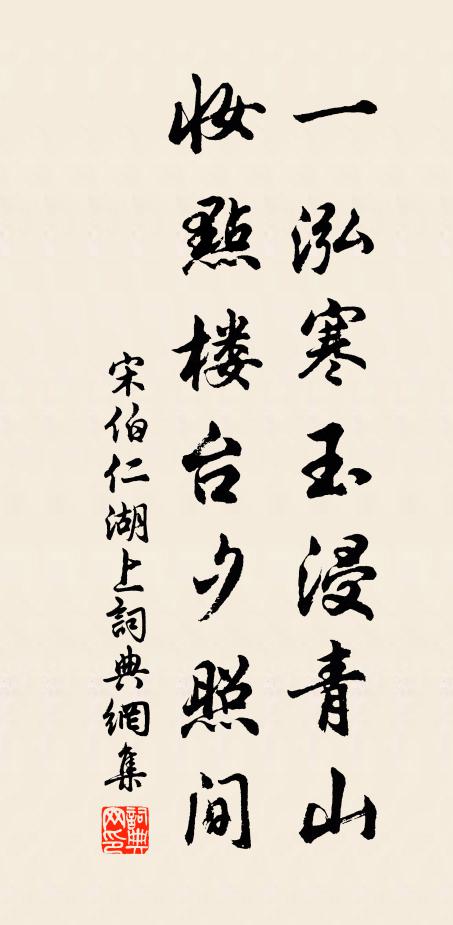 一泓寒玉浸青山
妆點楼台夕照间
宋伯仁湖上詞典網集
詞典网印